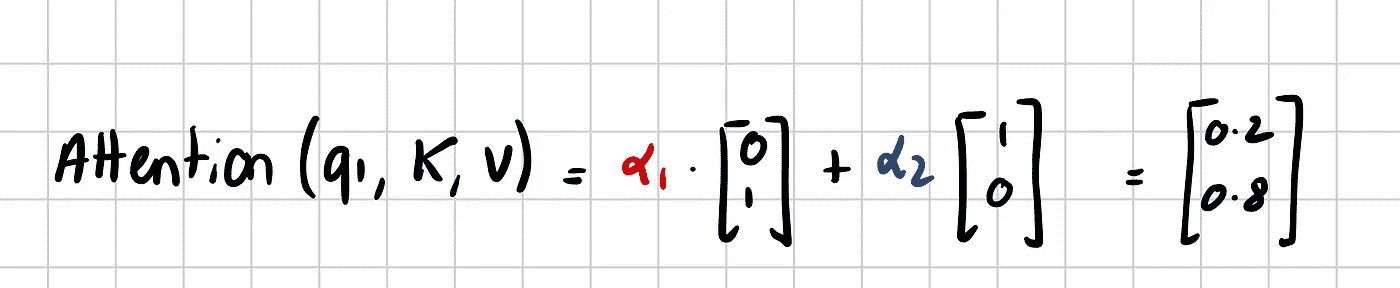 Attention (q₁, K, V) = α₁ · [0 1] + α₂ [1 0] = [0.2 0.8]